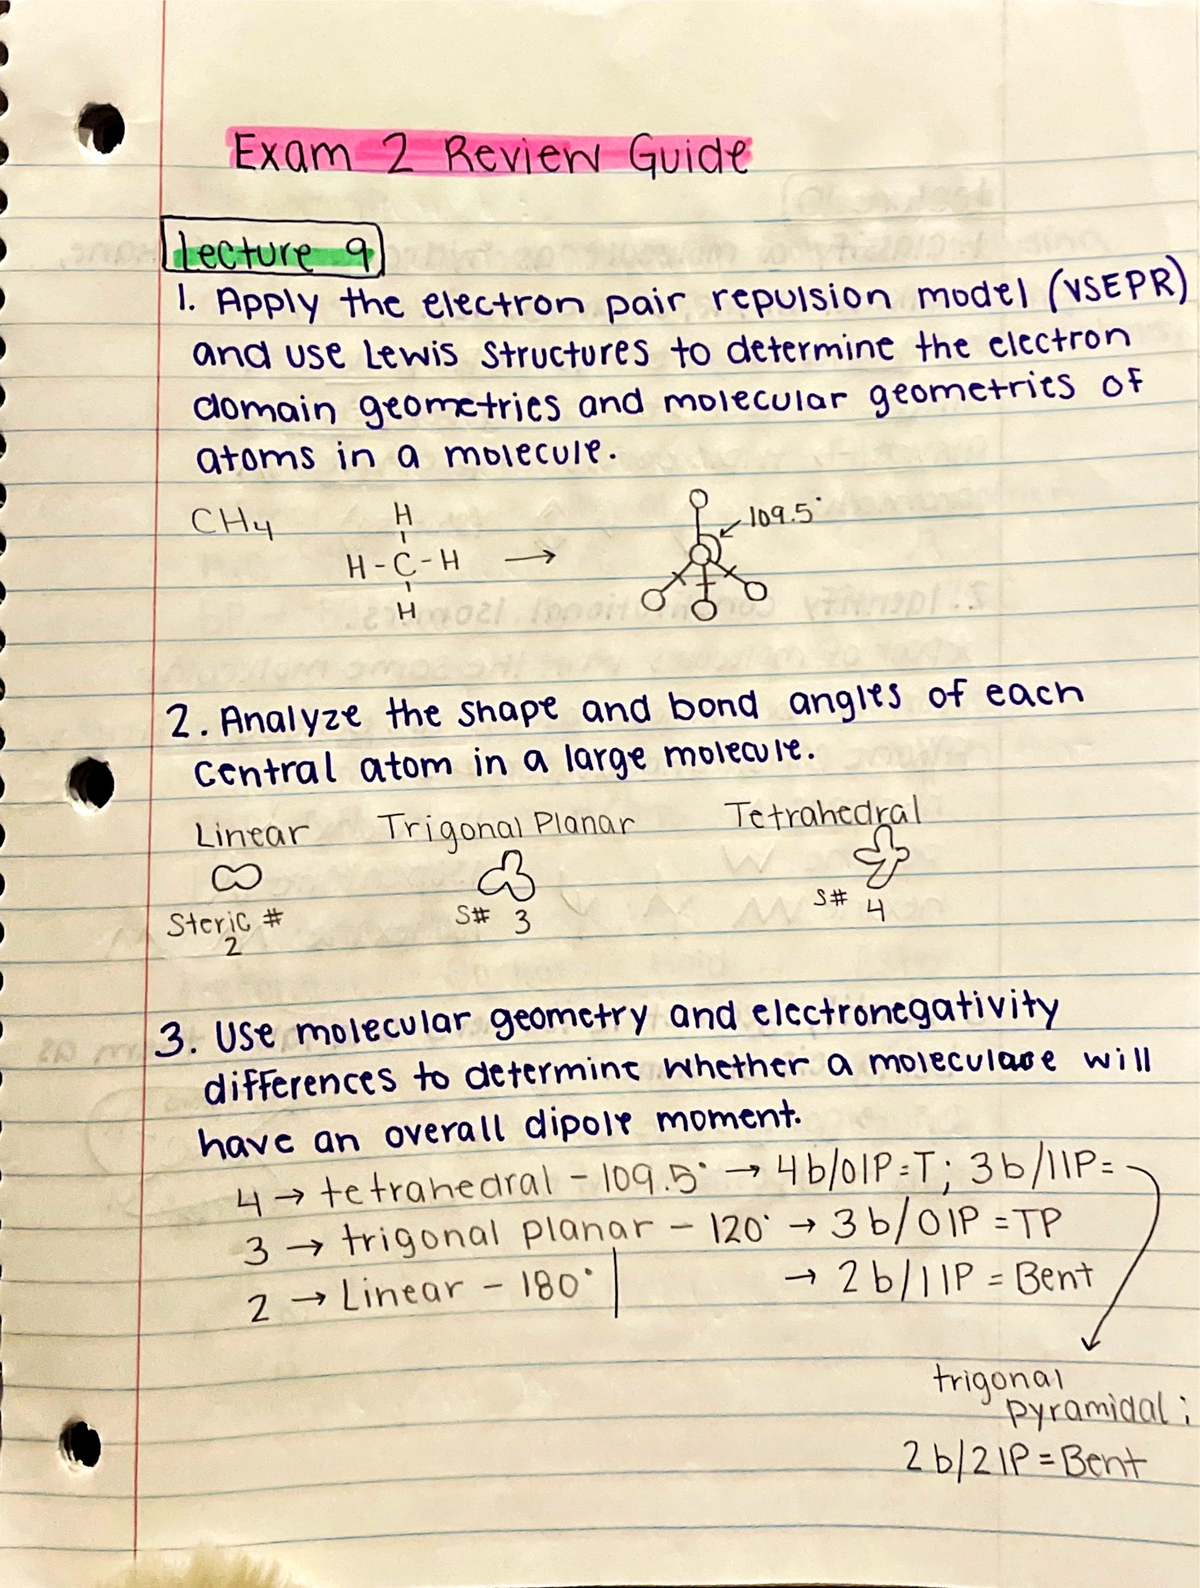 Exam 2 Review Guide
Lecture 9
1. Apply the electron pair repulsion model (VSEPR)
and use Lewis Structures to determine the electron
domain geometries and molecular geometries of
atoms in a molecule.
CH4
H
H-C-H →
H
109.5°
2. Analyze the shape and bond angles of each
central atom in a large molecule.
Linear Trigonal Planar Tetrahedral
Steric # S# 3 S# 4
2
3. Use molecular geometry and electronegativity
differences to determine whether a moleculare will
have an overall dipole moment.
4 → tetrahedral - 109.5° → 4b/0lP=T; 3b/1lP=
3 → trigonal planar - 120° → 3b/0lP=TP
2 → Linear - 180° | → 2b/1lP = Bent
trigonal
pyramidal;
2b/2lP=Bent